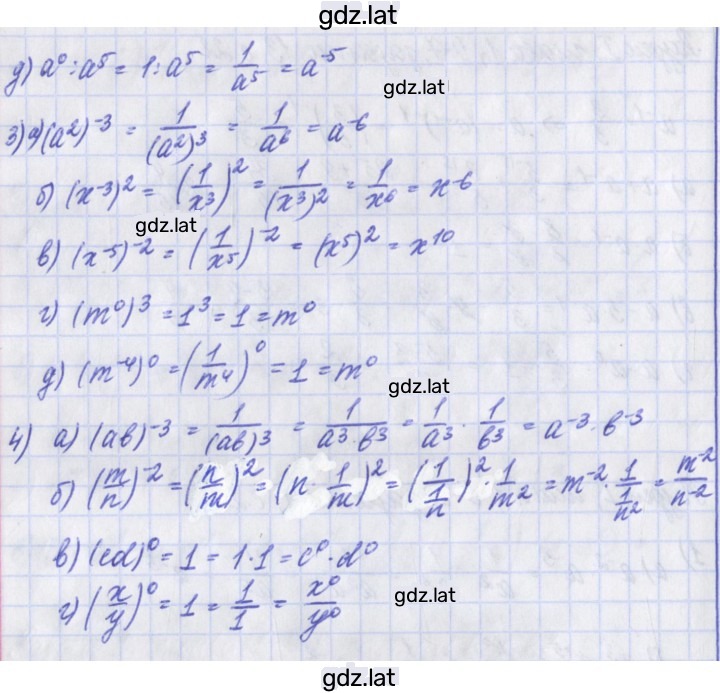 gdz.lat
д) a⁰ : a⁵ = 1 : a⁵ = 1/a⁵ = a⁻⁵
gdz.lat
3) а) (a²)⁻³ = 1/(a²)³ = 1/a⁶ = a⁻⁶
б) (x⁻³)² = (1/x³)² = 1/(x³)² = 1/x⁶ = x⁻⁶
gdz.lat
в) (x⁻⁵)⁻² = (1/x⁵)⁻² = (x⁵)² = x¹⁰
г) (m⁰)³ = 1³ = 1 = m⁰
д) (m⁻⁴)⁰ = (1/m⁴)⁰ = 1 = m⁰
gdz.lat
4) а) (ab)⁻³ = 1/(ab)³ = 1/a³·b³ = 1/a³ · 1/b³ = a⁻³ · b⁻³
б) (m/n)⁻² = (n/m)² = (n · 1/m)² = (1/(1/n))² · 1/m² = m⁻² · 1/(1/n²) = m⁻²/n⁻²
в) (cd)⁰ = 1 = 1·1 = c⁰ · d⁰
г) (x/y)⁰ = 1 = 1/1 = x⁰/y⁰
gdz.lat
gdz.lat